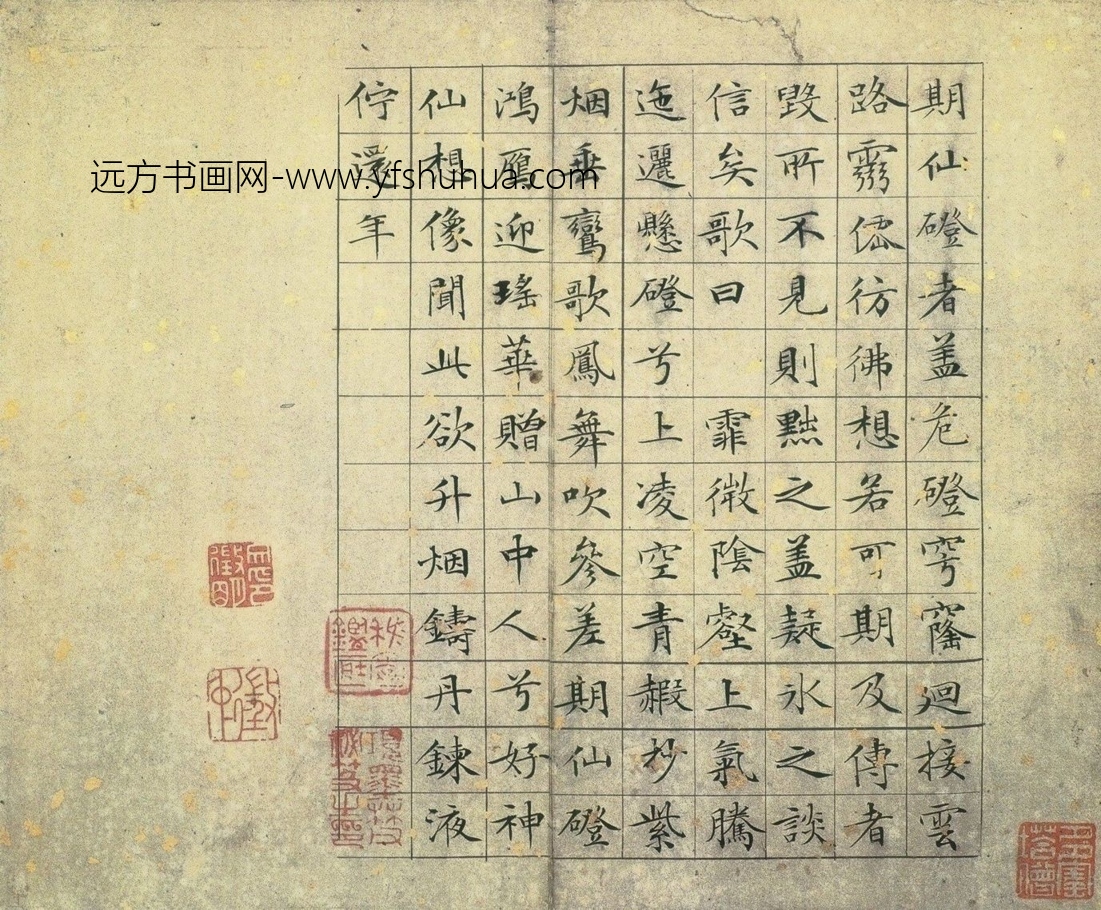 期仙磴者盖危磴穹窿迴接雲
路靈僊彷彿想若可期及傳者
毀所不見則黜之盖疑氷之談
信矣歌曰 霏微陰壑上氣騰
迤邐懸磴兮上凌空青赮杪紫
烟垂鸞歌鳳舞吹參差期仙磴
鴻鴈迎瑤華贈山中人兮好神
仙想像聞此欲升烟鑄丹鍊液
佇還年
远方书画网-www.yfshuhua.com